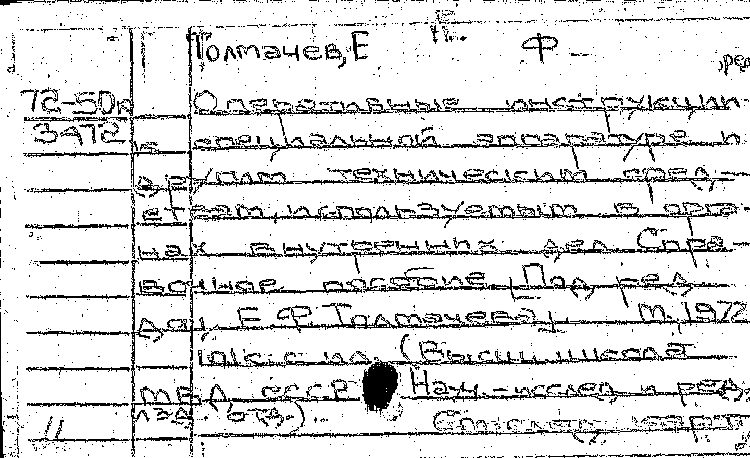 Толмачев, Е Ф. ,ред
72-50
3472
Оперативные инструкции
к специальной аппаратуре и
другим техническим сред-
ствам, используемым в орга-
нах внутренних дел Спра-
вочное пособие [Под ред
Е. Ф. Толмачева]. М. 1972
с ил. (Высш школа
МВД СССР Науч.-исслед и ред.
изд. отд.)..
11